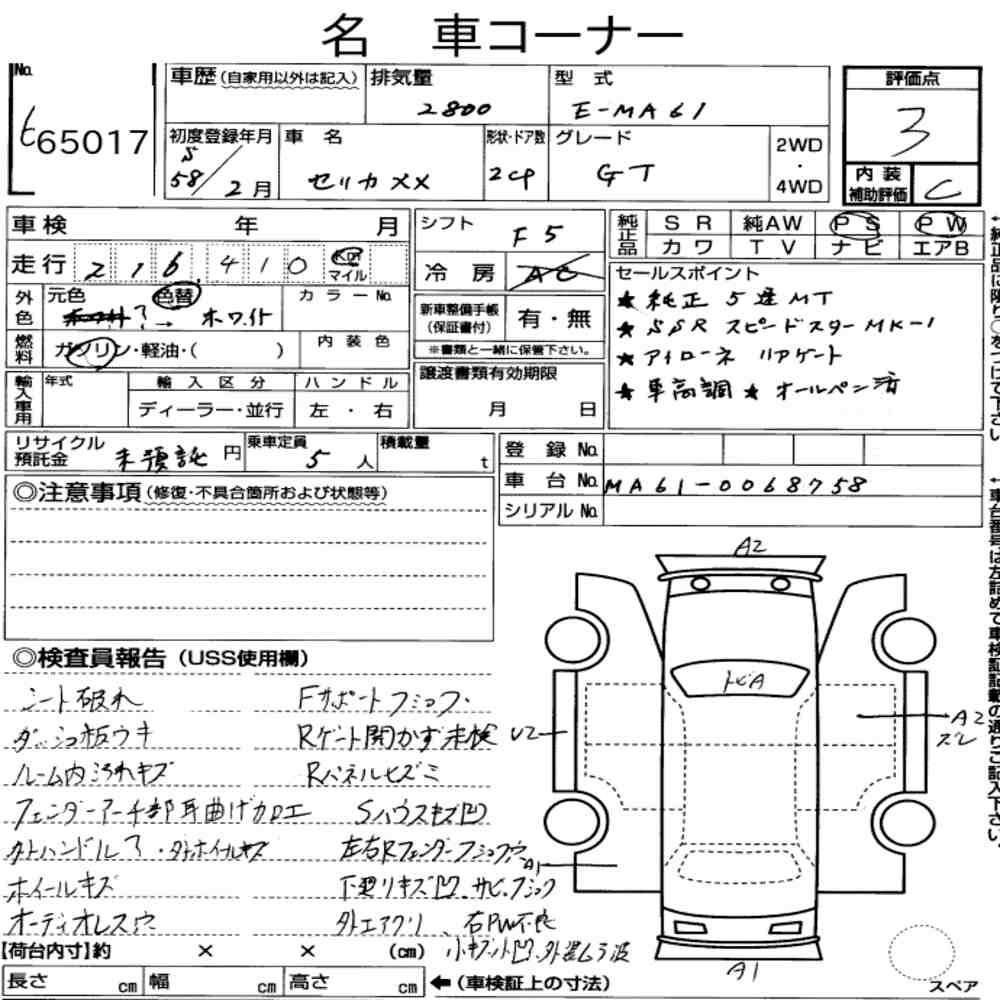 名 車コーナー
No.
t65017
車歴(自家用以外は記入) 排気量 2800 型式 E-MA61
評価点 3
初度登録年月 S58/2月 車名 セリカXX 形状・ドア数 2cp グレード GT 2WD・4WD
内装補助評価 C
車検 年 月 シフト F5
純正品 SR 純AW PS PW
カワ TV ナビ エアB
走行 216,410 Km マイル
冷房 AC
セールスポイント
★純正 5速MT
★SSR スピードスターMK-1
★アイローネ リアゲート
★車高調 ★オールペン済
外色 元色 ? → 色替 ホワイト カラーNo.
新車整備手帳(保証書付) 有・無
※書類と一緒に保管下さい。
燃料 ガソリン・軽油・( ) 内装色
譲渡書類有効期限
月 日
輸入車用 年式 輸入区分 ハンドル
ディーラー・並行 左・右
リサイクル預託金 未預託 円 乗車定員 5人 積載量 t
登録No.
車台No. MA61-0068758
シリアルNo.
◎注意事項(修復・不具合箇所および状態等)
◎検査員報告(USS使用欄)
シート破れ Fサポートフショク・
ダッシュ板ウキ Rゲート開かず未検
ルーム内汚れキズ Rパネルヒズミ
フェンダーアーチ部耳曲げカロエ Sハウスキズ凹
外ハンドルア・タホイルキズ 左右Rフェンダーフショク穴
ホイールキズ 下廻りキズ凹、サビ、フショク
オーディオレス穴 外エアクリ、右PW不良
小キズ凹、外装ムラ波
A2
トビA
U2
A2
ス2
A1
A1
【荷台内寸】約 × × (cm)
長さ cm 幅 cm 高さ cm ←(車検証上の寸法)
スペア
↑純正品に限り○をつけて下さい
↑車台番号は左詰めで車検証記載の通りご記入下さい。